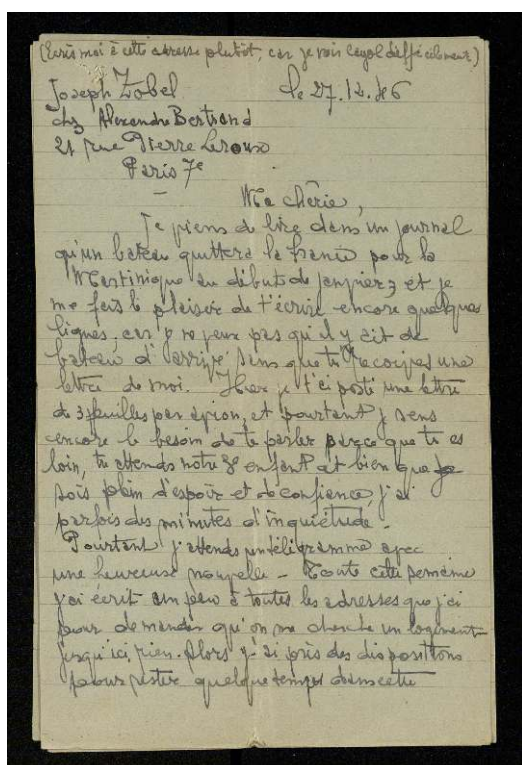 (Ecris moi à cette adresse plutôt, car je vois Cayol difficilement)
Joseph Zobel le 27.12.46
chz Alexandre Bertrand
21 rue Pierre Leroux
Paris 7e
Ma chérie,
Je viens de lire dans un journal
qu'un bateau quittera la france pour la
Martinique au débuts de janvier, et je
me fais le plaisir de t'écrire encore quelques
lignes, car je ne veux pas qu'il y ait de
bateau d'arrivé sans que tu reçoives une
lettre de moi. Hier je t'ai posté une lettre
de 3 feuilles par avion, et pourtant je sens
encore le besoin de te parler parce que tu es
loin, tu attends notre 3e enfant et bien que je
sois plein d'espoir et de confiance, j'ai
parfois des minutes d'inquiétude.
Pourtant j'attends un télégramme avec
une heureuse nouvelle - Toute cette semaine
j'ai ecrit un peu à toutes les adresses que j'ai
pour demander qu'on me cherche un logement
jusqu'ici, rien. Alors j'ai pris des dispositions
pour rester quelque temps dans cette